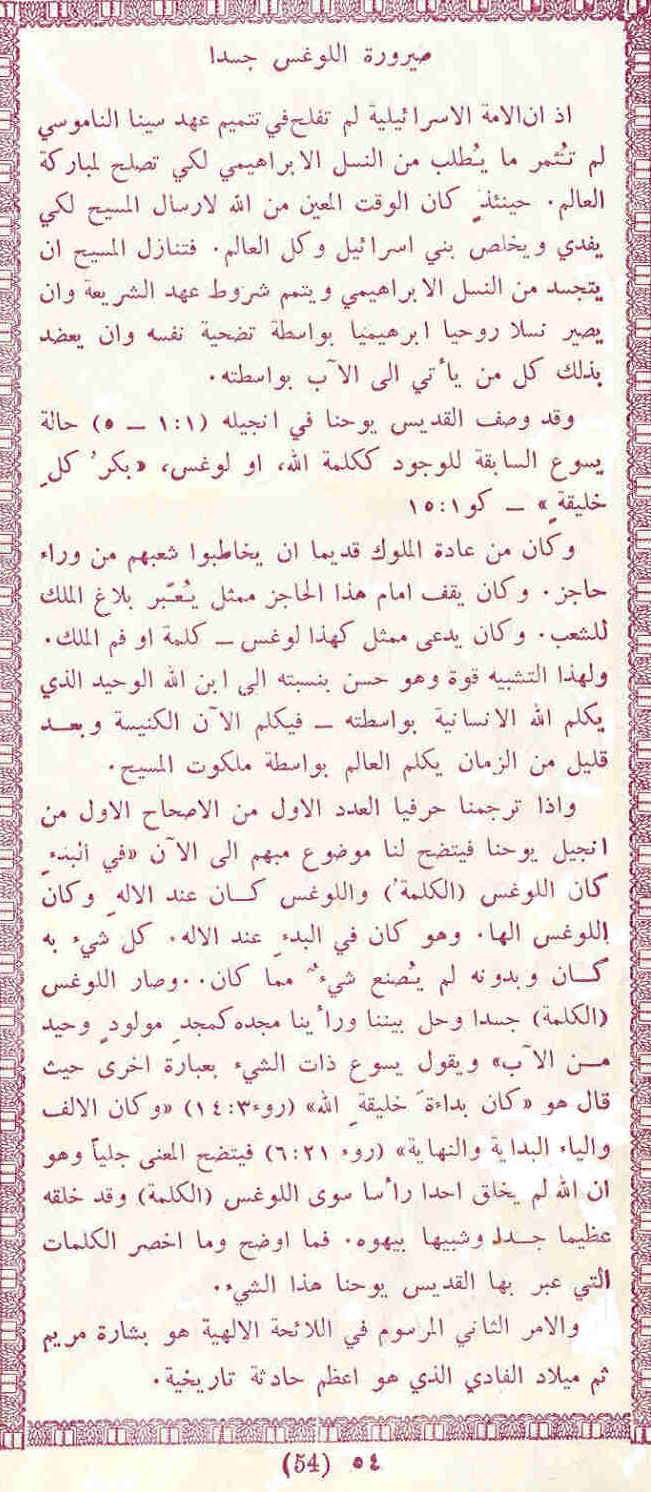 صيرورة اللوغس جسدا
اذ ان الامة الاسرائيلية لم تفلح في تتميم عهد سينا الناموسي
لم تُثمر ما يُطلب من النسل الابراهيمي لكي تصلح لمباركة
العالم. حينئذٍ كان الوقت المعين من الله لارسال المسيح لكي
يفدي ويخلص بني اسرائيل وكل العالم. فتنازل المسيح ان
يتجسد من النسل الابراهيمي ويتمم شروط عهد الشريعة وان
يصير نسلا روحيا ابرهيميا بواسطة تضحية نفسه وان يعضد
بذلك كل من يأتي الى الآب بواسطته.
وقد وصف القديس يوحنا في انجيله (١:١ – ٥) حالة
يسوع السابقة للوجود ككلمة الله، او لوغس، «بكرُ كلِ
خليقةٍ» – كو ١٥:١
وكان من عادة الملوك قديما ان يخاطبوا شعبهم من وراء
حاجز. وكان يقف امام هذا الحاجز ممثل يُعَبّر بلاغ الملك
للشعب. وكان يدعى ممثل كهذا لوغس – كلمة او فم الملك.
ولهذا التشبيه قوة وهو حسن بنسبته الى ابن الله الوحيد الذي
يكلم الله الانسانية بواسطته – فيكلم الآن الكنيسة وبعد
قليل من الزمان يكلم العالم بواسطة ملكوت المسيح.
واذا ترجمنا حرفيا العدد الاول من الاصحاح الاول من
انجيل يوحنا فيتضح لنا موضوع مبهم الى الآن «في البدءِ
كان اللوغس (الكلمةُ) واللوغس كان عند الالهِ وكان
اللوغس الها. وهو كان في البدءِ عند الاله. كل شيء به
كان وبدونه لم يُصنع شيءٌ مما كان.. وصار اللوغس
(الكلمة) جسدا وحل بيننا ورأينا مجده كمجدِ مولودٍ وحيد
من الآب» ويقول يسوع ذات الشيء بعبارة اخرى حيث
قال هو «كان بداءةَ خليقةِ الله» (روء ١٤:٣) «وكان الالف
والياء البداية والنهاية» (روء ٦:٢١) فيتضح المعنى جلياً وهو
ان الله لم يخلق احدا رأسا سوى اللوغس (الكلمة) وقد خلقه
عظيما جدا وشبيها بيهوه. فما اوضح وما اخصر الكلمات
التي عبر بها القديس يوحنا هذا الشيء.
والامر الثاني المرسوم في اللائحة الالهية هو بشارة مريم
ثم ميلاد الفادي الذي هو اعظم حادثة تاريخية.
٥٤ (54)